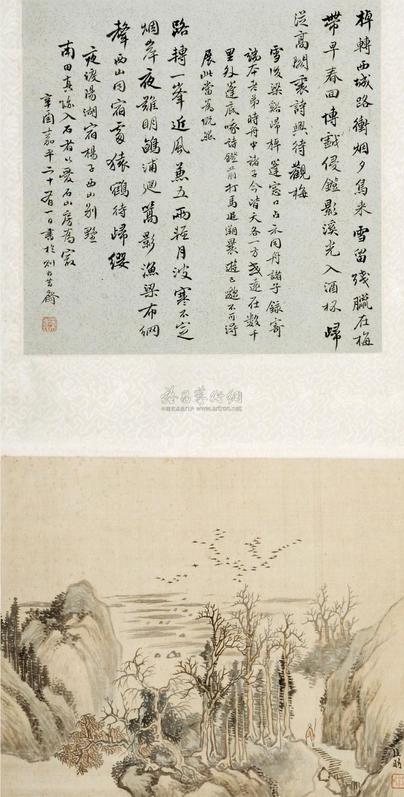 棹轉西城路衝烟夕鳥來雪留殘臘在梅
帶早春回博戲侵鐙影溪光入酒杯歸
從高閣裏詩興待觀梅
雪後梁谿歸棹蓬窗口占示同舟諸子錄寄
端本老弟時舟中諸子今皆天各一方或遠在數千
里外蓬底哦詩鐙前打馬追溯曩遊已邈不可得
展此當為慨然
路轉一峯近風兼五兩輕月波寒不定
烟岸夜難明鷗浦迴篙影漁梁布網
聲西山同宿處猿鶴待歸纓
夜渡陽湖宿楊子西山別墅
南田真跡入石者以愛石山房為最
辛酉嘉平二十有一日書於齋
雅昌藝術網
www.artron.net